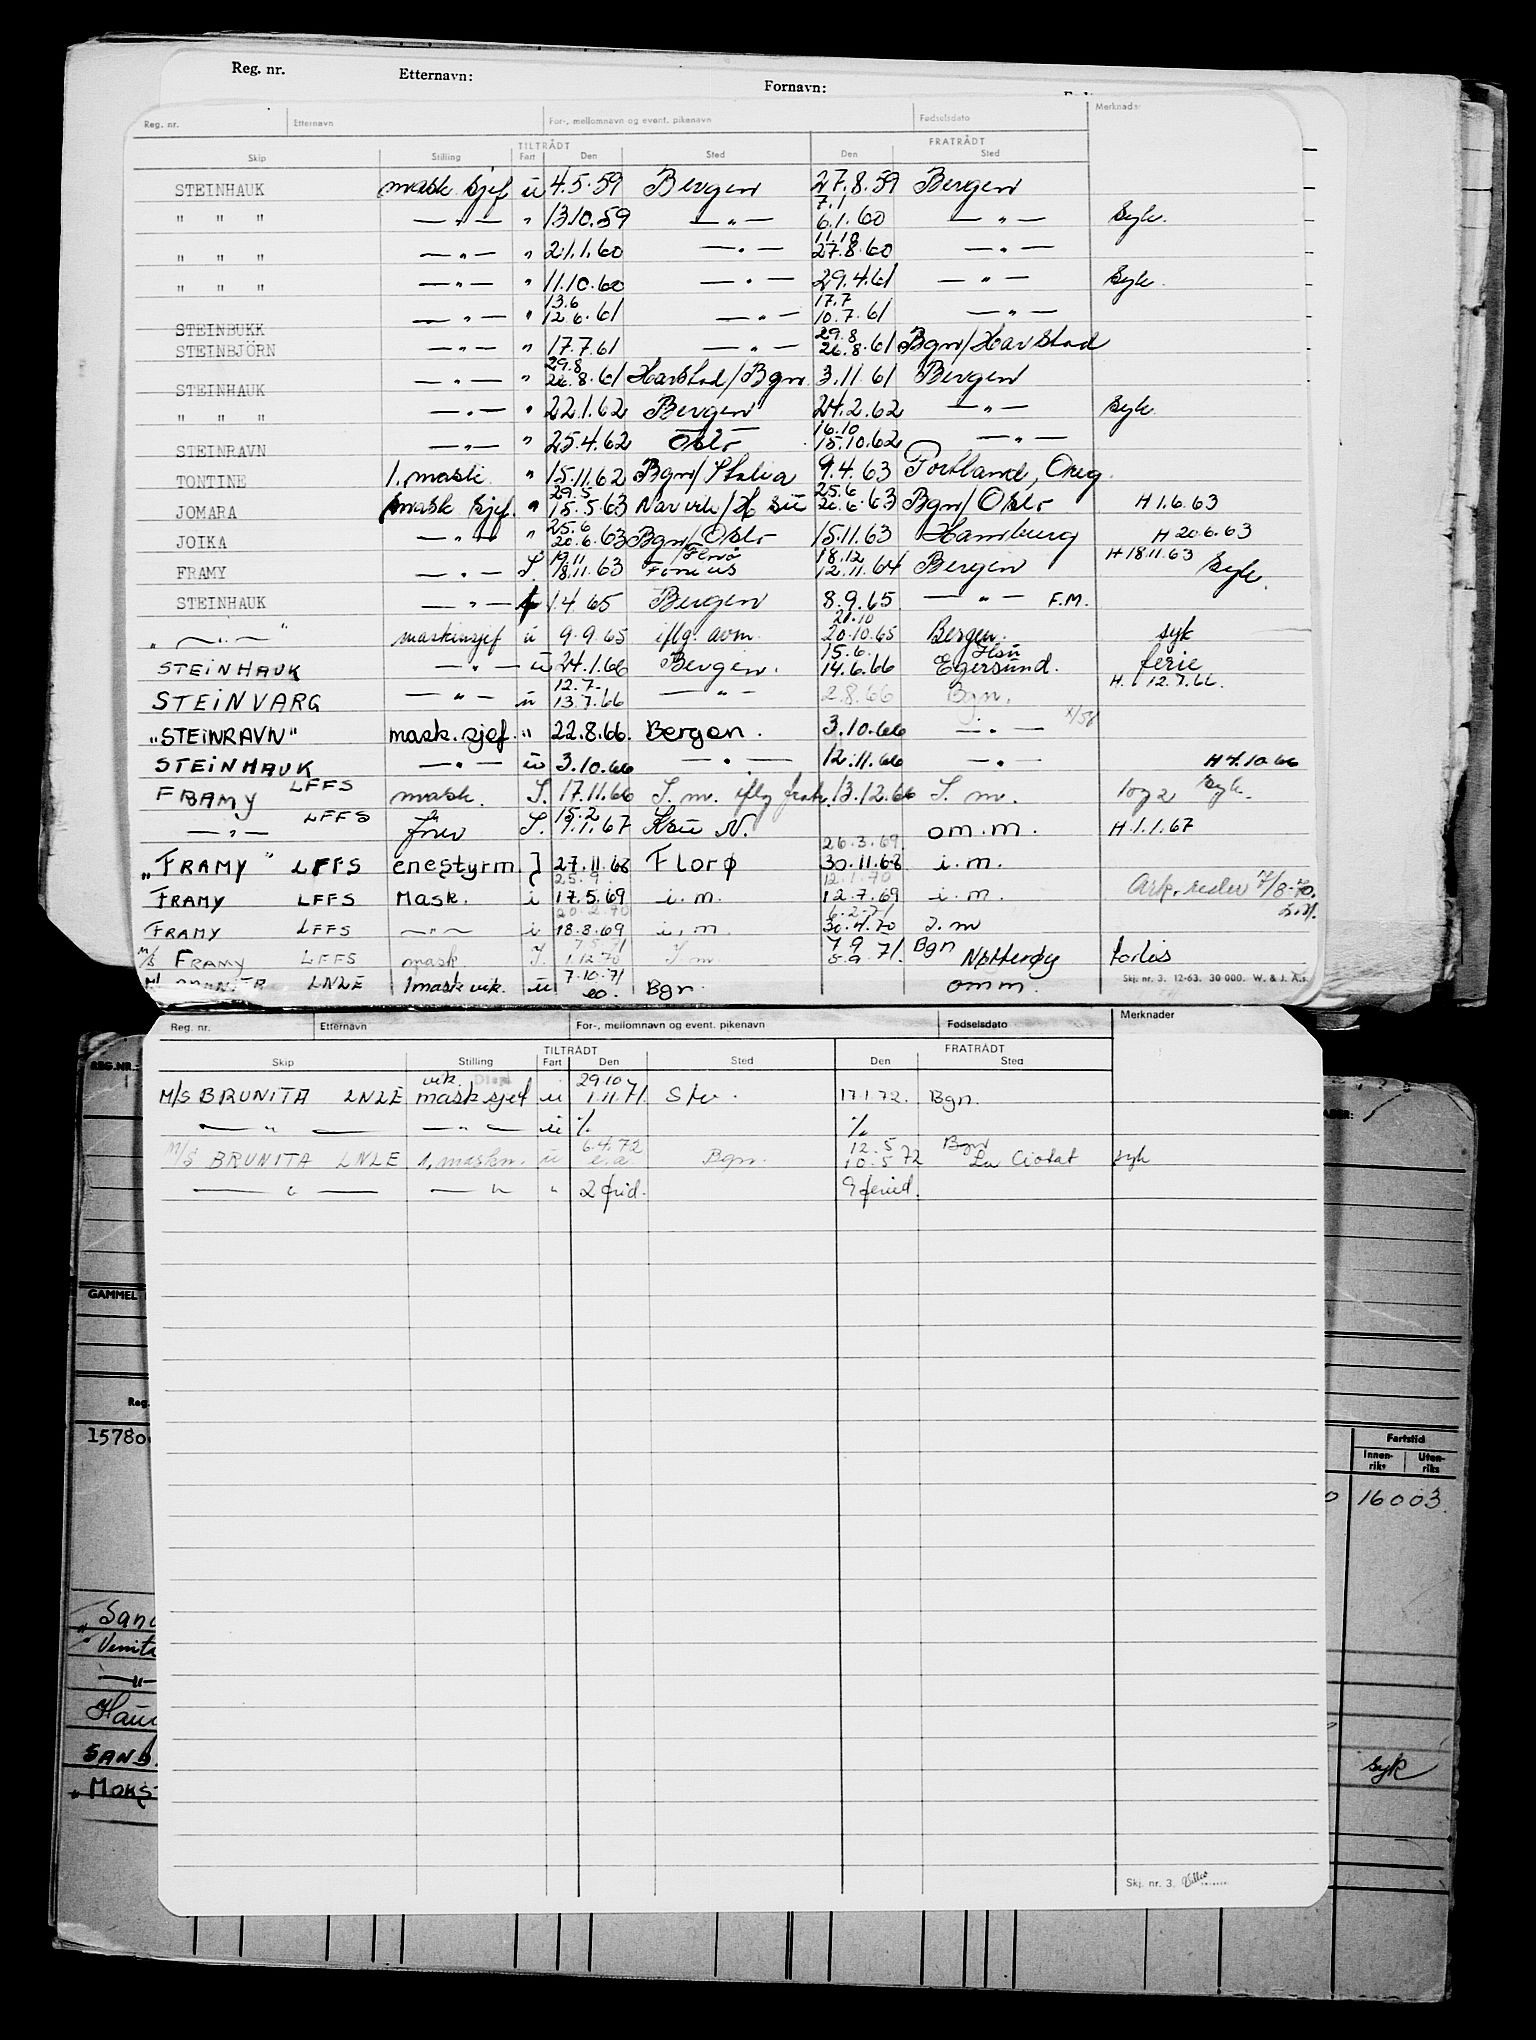 Reg. nr. Etternavn: Fornavn:
Reg. nr. Etternavn For-, mellomnavn og event. pikenavn Fødselsdato Merknader
TILTRÅDT FRATRÅDT
Skip Stilling Fart Den Sted Den Sted
STEINHAUK mask. sjef u 4.5.59 Bergen 27.8.59 Bergen
" " " — " — " 13.10.59 — " — 7.1 6.1.60 — " — Syk.
" " " — " — " 21.1.60 — " — 11.10 27.8.60 — " —
" " " — " — " 11.10.60 — " — 29.4.61 — " — Syk.
STEINBUKK — " — " 13.6 12.6.61 — " — 17.7 10.7.61 — " —
STEINBJÖRN — " — " 17.7.61 — " — 29.8 26.8.61 Bgn/Harstad
STEINHAUK — " — " 29.8 26.8.61 Harstad/Bgn. 3.11.61 Bergen
" " " — " — " 22.1.62 Bergen 24.2.62 — " — Syk.
STEINRAVN — " — " 25.4.62 Oslo 16.10 15.10.62 — " —
TONTINE 1. mask. " 15.11.62 Bgn/Italia 9.4.63 Portland, Oreg.
JOMARA mask sjef. " 29.5 15.5.63 Narvik/H su 25.6 20.6.63 Bgn/Oslo H 1.6.63
JOIKA — " — " 25.6 20.6.63 Bgn/Oslo 15.11.63 Hamburg H 20.6.63
FRAMY — " — I. 19.11 18.11.63 /Florø 18.12 12.11.64 Bergen H 18.11.63 Syk.
STEINHAUK — " — 1.4.65 Bergen 8.9.65 — " — F.M.
" — " — " maskinsjef u 9.9.65 iflg. avm. 21.10 20.10.65 Bergen. syk
STEINHAUK — " — u 24.1.66 Bergen. 15.6. 14.6.66 Hsu Egersund. ferie
STEINVARG — " — u 12.7. 13.7.66 — " — 2.8.66 Bgn. H. 12.7.66.
"STEINRAVN" mask. sjef. " 22.8.66. Bergen. 3.10.66 — " —
STEINHAUK — " — u 3.10.66 — " — 12.11.66 — " — H 7.10.66
FRAMY LFFS mask. I. 17.11.66 I. m. iflg frakt. 13.12.66 I. m. Syk.
— " — LFFS fører I. 15.2 9.1.67 Krsu N. om.m. H.1.1.67
"FRAMY" LFFS enestyrm. 27.11.68 Florø 26.3.69. 30.11.68 i.m.
FRAMY LFFS Mask. i 25.9. 17.5.69 i.m. 12.1.70 12.7.69 i.m.
FRAMY LFFS — " — i 20.2.70 18.8.69 i.m. 6.2.71 30.4.70 I.m
M/S FRAMY LFFS mask I. 7.5.71 1.12.70 I.m 7.9.71. Bgn Nøtterøy forlis
LNLE 1mask vik. u 7.10.71 eo. Bgn. omm.
Skj. nr. 3. 12-63. 30 000. W. & J. A.s.
Reg. nr. Etternavn For-, mellomnavn og event. pikenavn Fødselsdato Merknader
TILTRÅDT FRATRÅDT
Skip Stilling Fart Den Sted Den Sted
M/S BRUNITA LNLE vik. mask sjef u 29.10 1.11.71. Stv. 17.1.72. Bgn.
— " — — " — u % %
M/S BRUNITA LNLE 1. maskn. u 6.4.72 e.a. Bgn. 12.5 10.5.72 Bgn La Ciotat syk
— " — — " — " 2 frid. 9 feried.
Skj. nr. 3.
REG.NR.:
GAMMEL
Reg.
Fartstid
Innen-riks Uten-riks
16003
syk